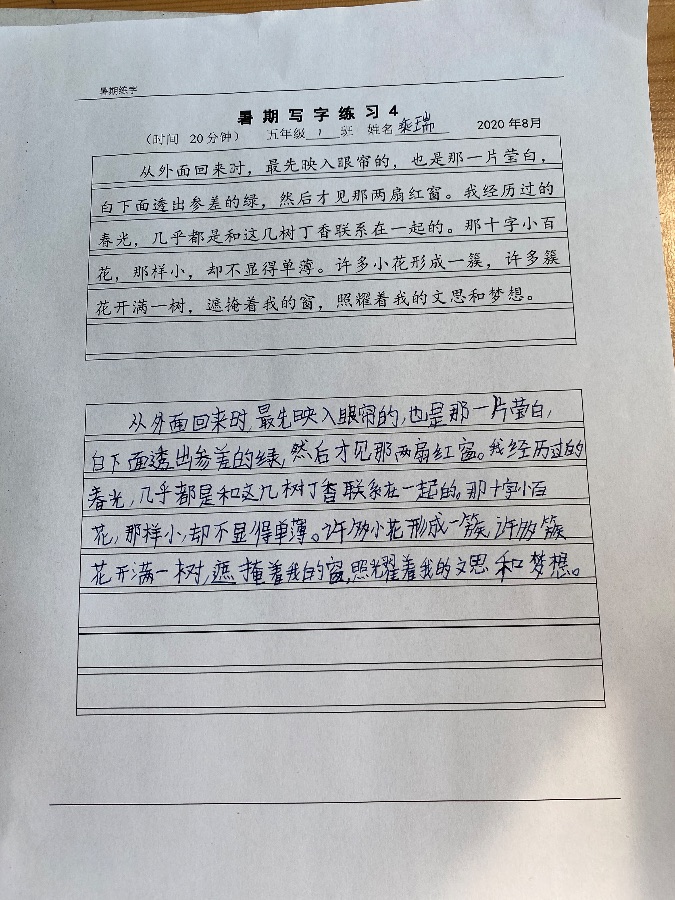 暑期练字
暑期写字练习4
（时间 20分钟） 五年级 1 班 姓名 瑞 2020年8月
从外面回来时，最先映入眼帘的，也是那一片莹白，
白下面透出参差的绿，然后才见那两扇红窗。我经历过的
春光，几乎都是和这几树丁香联系在一起的。那十字小百
花，那样小，却不显得单薄。许多小花形成一簇，许多簇
花开满一树，遮掩着我的窗，照耀着我的文思和梦想。
从外面回来时，最先映入眼帘的，也是那一片莹白，
白下面透出参差的绿，然后才见那两扇红窗。我经历过的
春光，几乎都是和这几树丁香联系在一起的。那十字小百
花，那样小，却不显得单薄。许多小花形成一簇，许多簇
花开满一树，遮掩着我的窗，照耀着我的文思和梦想。